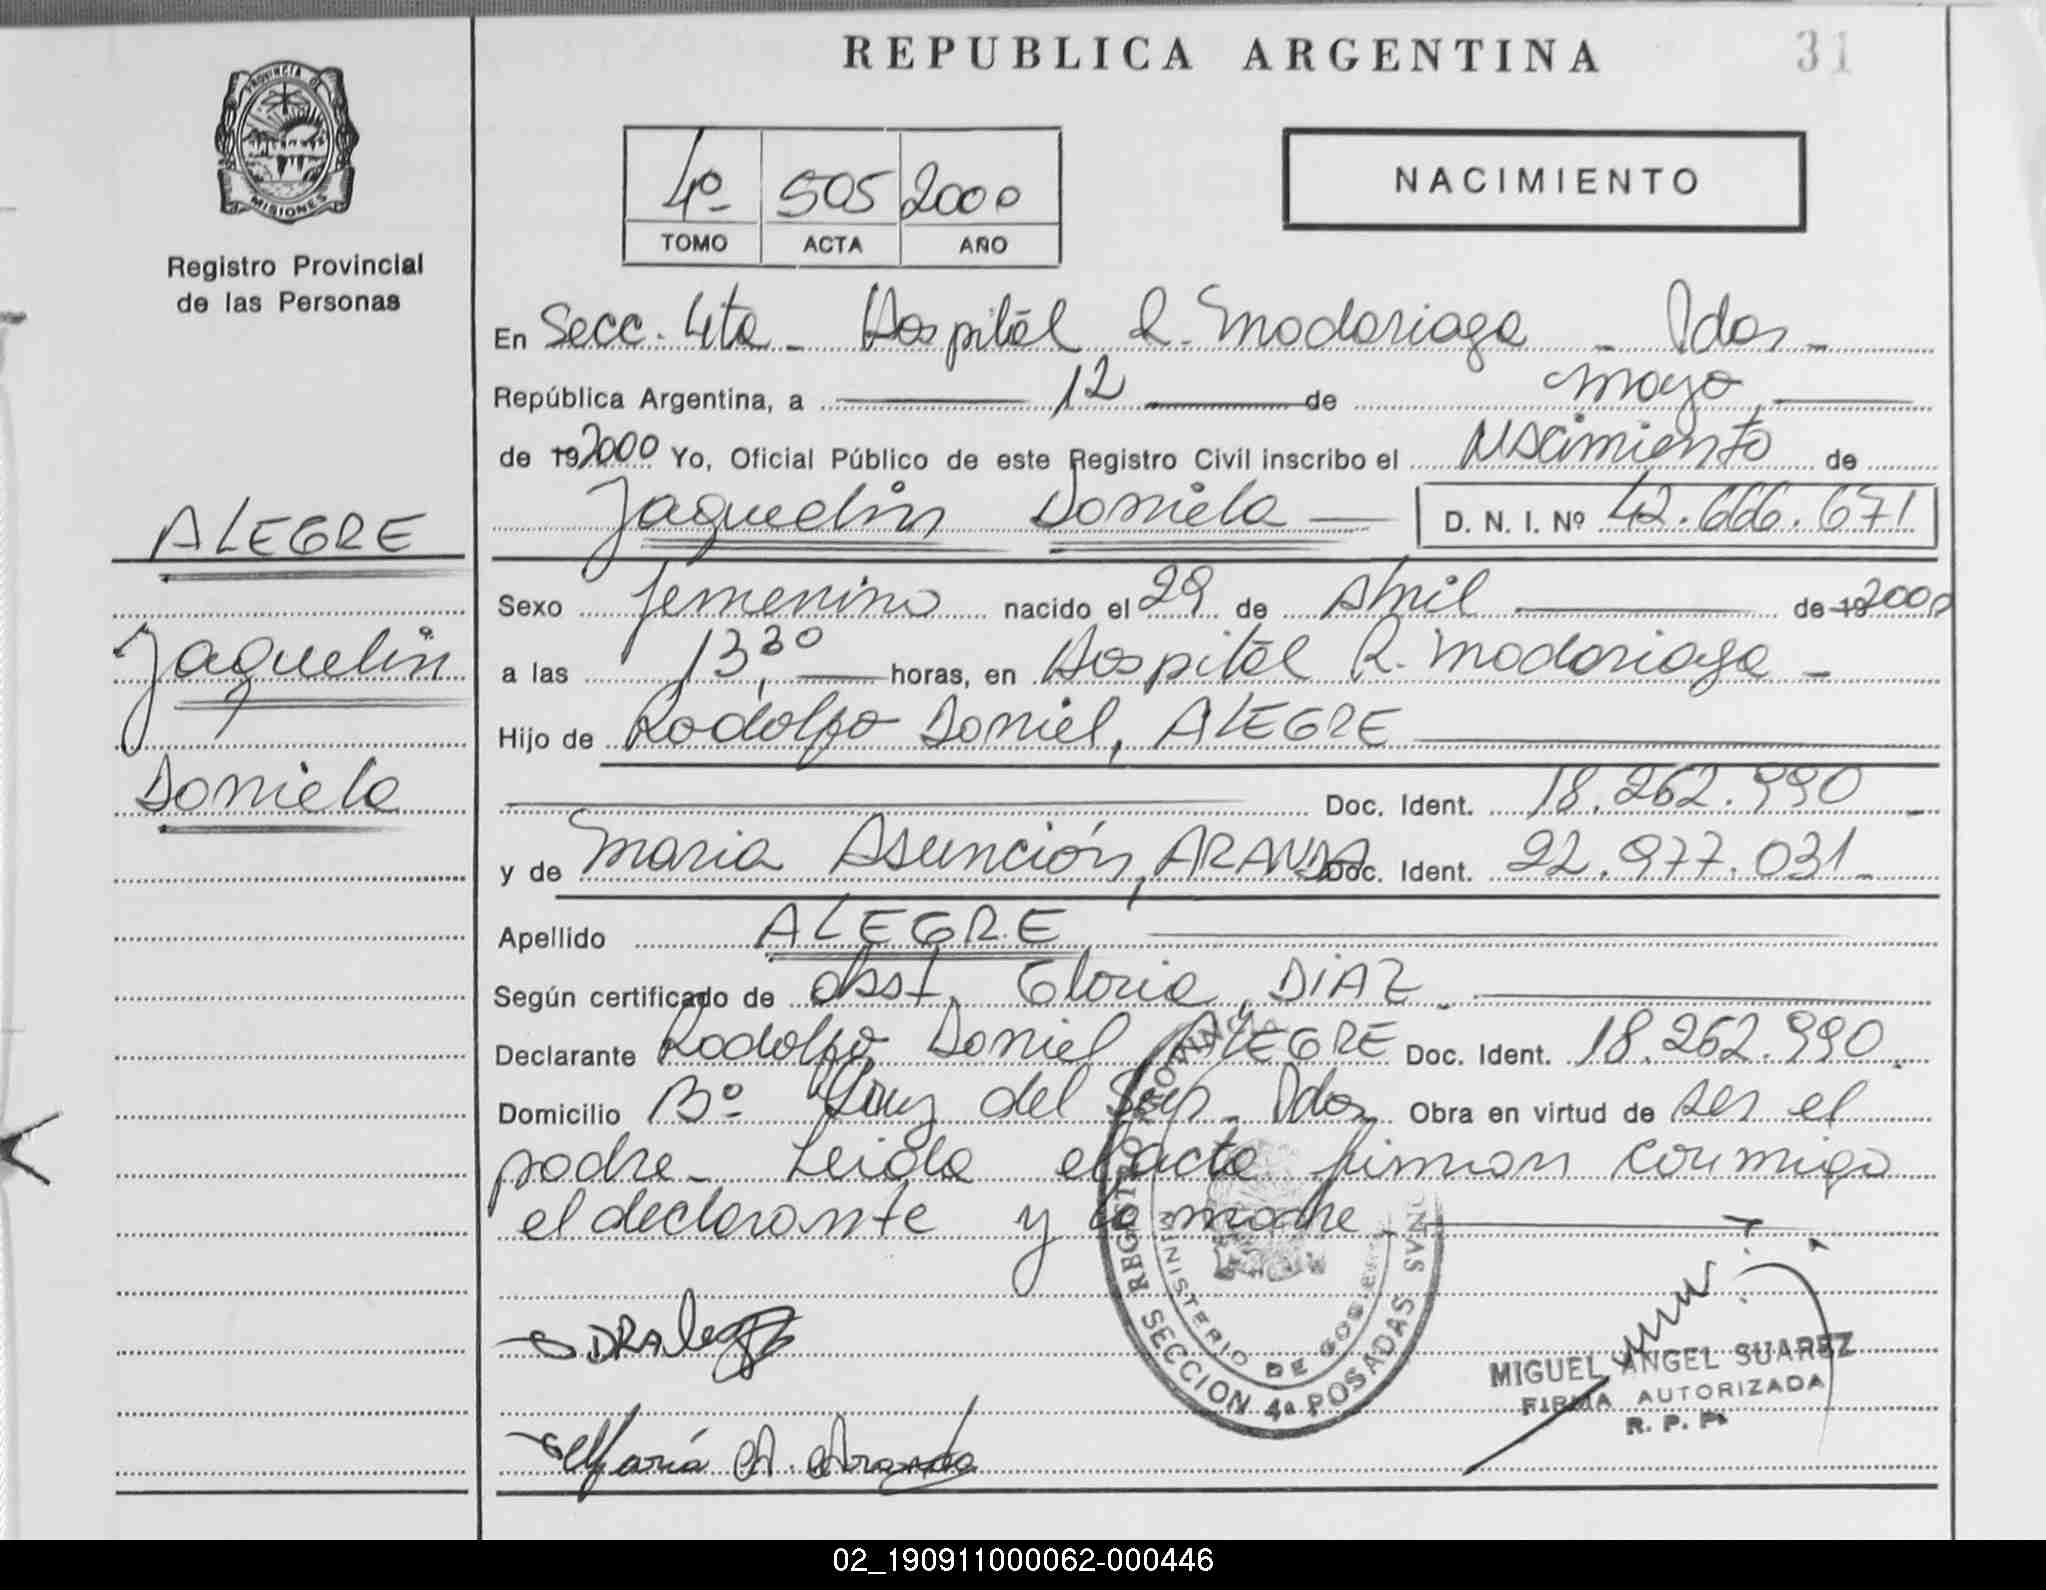 REPUBLICA ARGENTINA
31
PROVINCIA DE
MISIONES
Registro Provincial
de las Personas
4º 505 2000
TOMO ACTA AÑO
NACIMIENTO
En Secc. 4ta - Hospital R. Madariaga - Pdas -
República Argentina, a 12 de mayo
de 192000 Yo, Oficial Público de este Registro Civil inscribo el Nacimiento de
Jaquelin Daniela D. N. I. Nº 42.666.671
ALEGRE
Jaquelin
Daniela
Sexo femenino nacido el 29 de Abril de 19 2000
a las 13,30 horas, en Hospital R. Madariaga -
Hijo de Rodolfo Daniel, ALEGRE
Doc. Ident. 18.262.990
y de Maria Asunción, ARANDA Doc. Ident. 22.977.031 -
Apellido ALEGRE
Según certificado de obst. Gloria, DIAZ -
Declarante Rodolfo Daniel ALEGRE Doc. Ident. 18.262.990
Domicilio Bº Cruz del Sur - Pdas Obra en virtud de ser el
padre - Leida el acta firman conmigo
el declarante y la madre
DRAleg
María A. Aranda
REGISTRO PROVINCIAL
PERSONAS
MINISTERIO DE GOBIERNO
SECCION 4ª POSADAS
MIGUEL ANGEL SUAREZ
FIRMA AUTORIZADA
R. P. P.
02_190911000062-000446